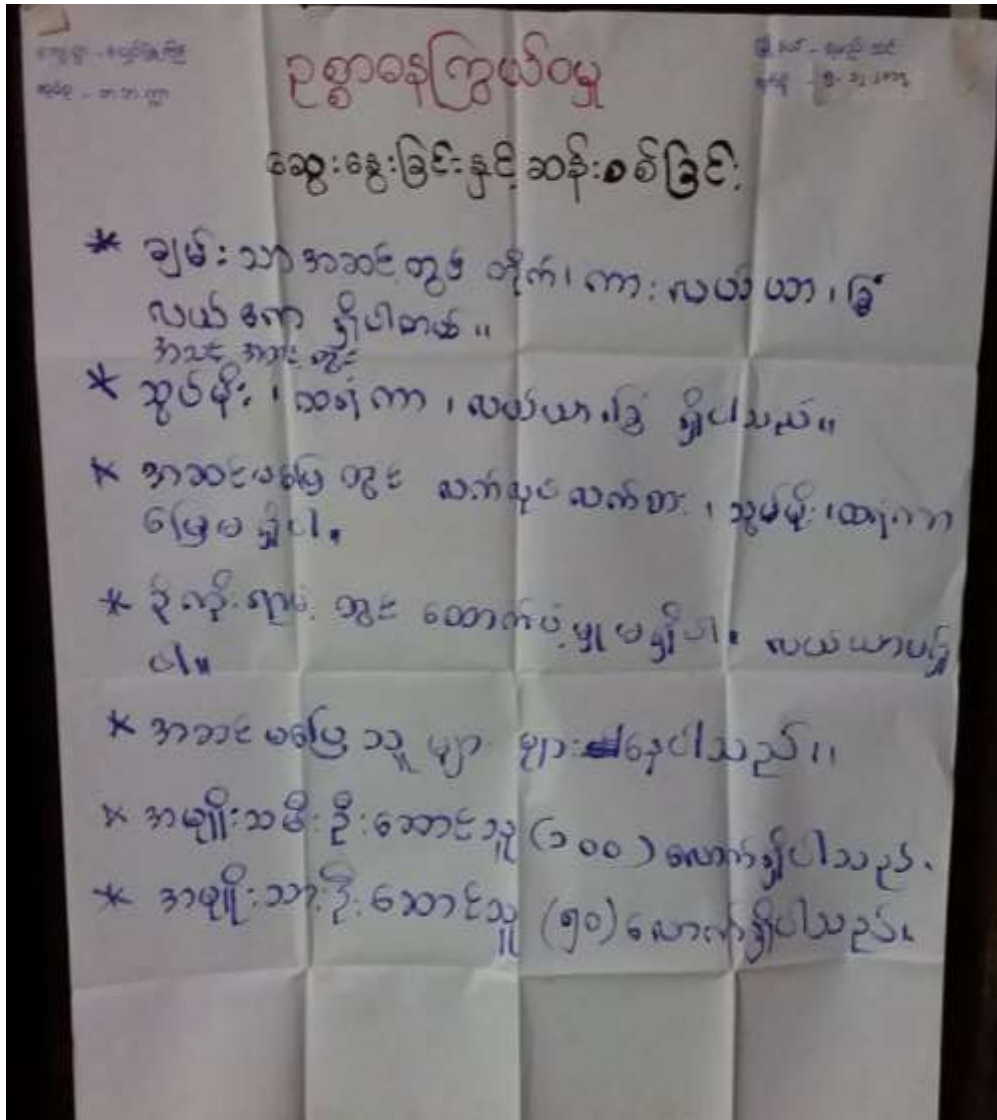 ဥစ္စာဓနကြွယ်ဝမှု
ဆွေးနွေးခြင်းနှင့် ဆန်းစစ်ခြင်း
* ချမ်းသာအဆင့်တွင် တိုက်၊ ကား၊ လယ်ယာ၊ ခြံ
လယ် ရှိပါတယ်။
အသင့် အတင့် တွင်
* သွပ်မိုး၊ ထရံကာ၊ လယ်ယာ၊ ခြံ ရှိပါသည်။
* အဆင်မပြေ တွင် လက်လုပ် လက်စား၊ သွပ်မိုး၊ ထရံကာ
မြေမရှိပါ။
* ဒုက္ခိုးရာမဲ့ တွင် ထောက်ပံ့မှု မရှိပါ။ လယ်ယာမရှိ
ပါ။
* အဆင်မပြေ သူ များ များနေပါသည်။
* အမျိုးသမီး ဦးဆောင်သူ (၁၀၀) လောက်ရှိပါသည်။
* အမျိုးသား ဦးဆောင်သူ (၅၀) လောက်ရှိပါသည်။